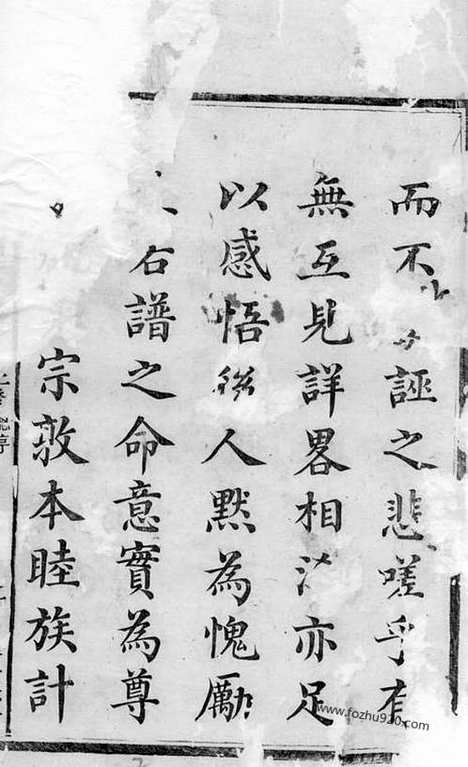 而不誣之悲嗟乎有
無互見詳畧相亦足
以感悟人默為愧勵
右譜之命意實為尊
宗敦本睦族計
www.fozhu920.com